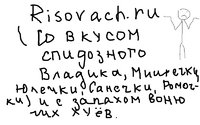 Risovach.ru
(со вкусом
спидозного
Владика, Мишечку
Юлечки, Санечки, Ромоч-
ки) и с запахом воню
чих хуёв.